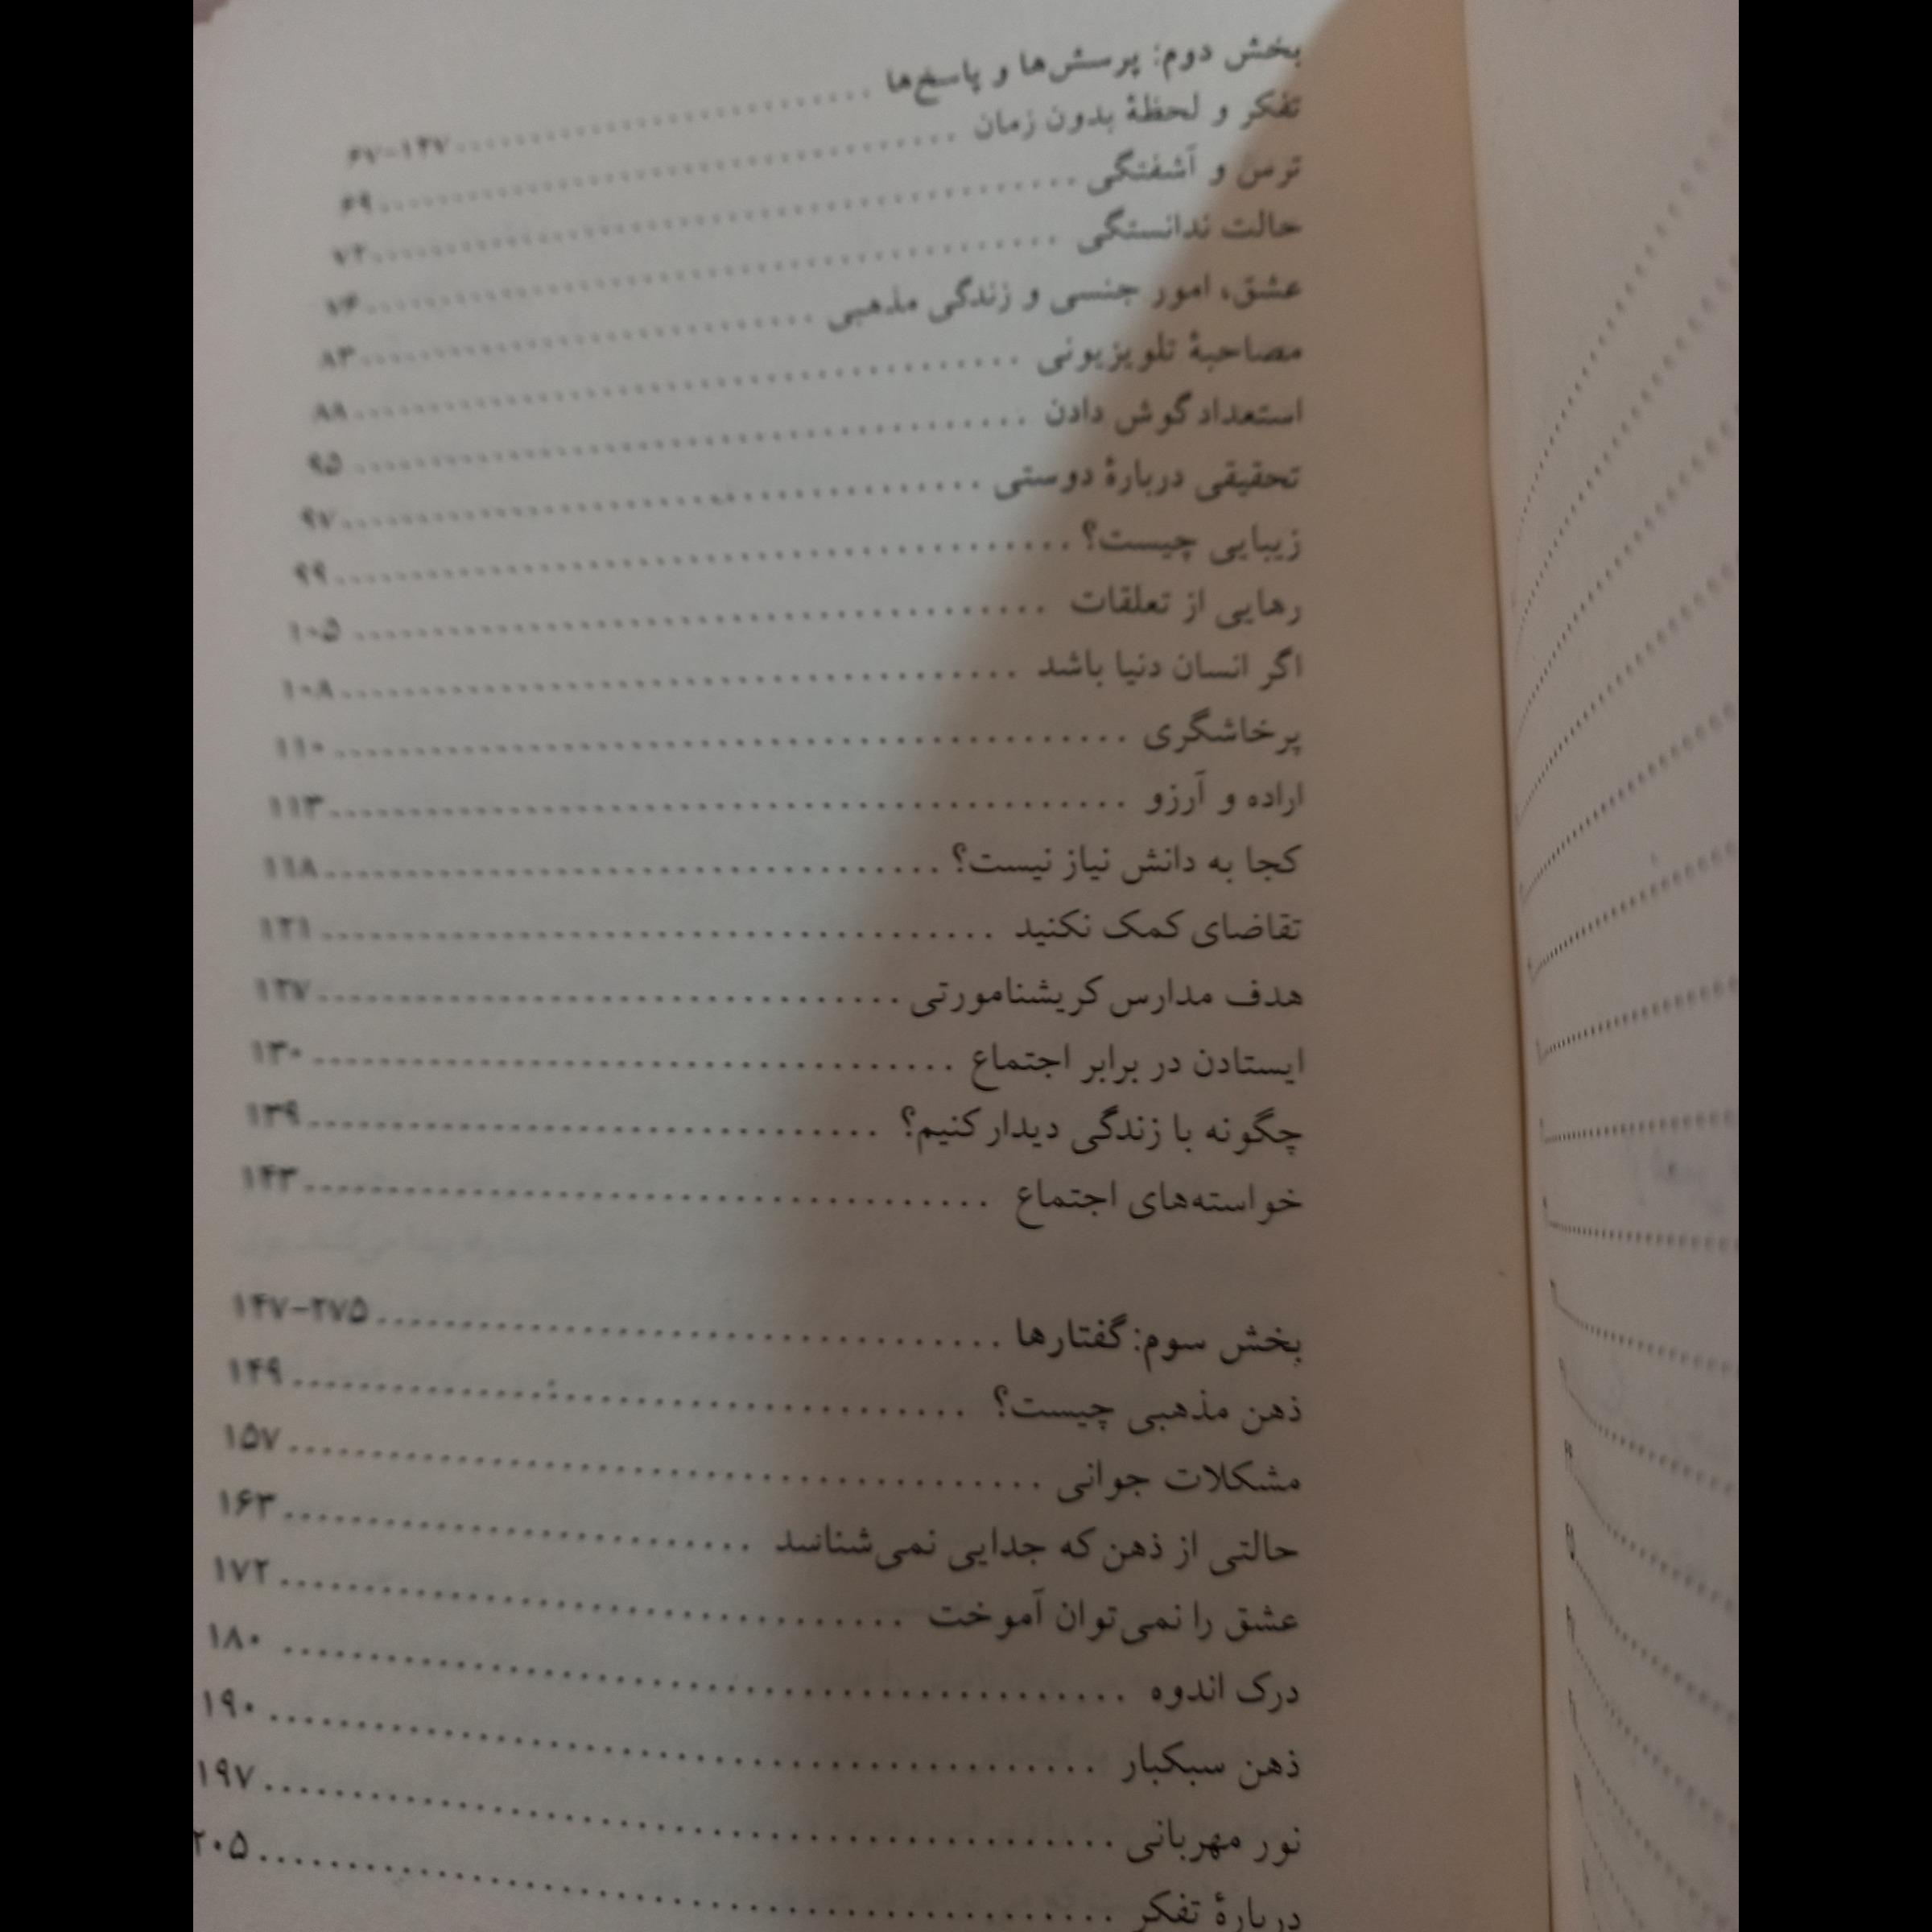 بخش دوم: پرسش‌ها و پاسخ‌ها ........ ۶۷-۱۴۷
تفکر و لحظهٔ بدون زمان ........ ۶۹
ترس و آشفتگی ........ ۷۲
حالت ندانستگی ........ ۷۶
عشق، امور جنسی و زندگی مذهبی ........ ۸۳
مصاحبهٔ تلویزیونی ........ ۸۸
استعداد گوش دادن ........ ۹۵
تحقیقی دربارهٔ دوستی ........ ۹۷
زیبایی چیست؟ ........ ۹۹
رهایی از تعلقات ........ ۱۰۵
اگر انسان دنیا باشد ........ ۱۰۸
پرخاشگری ........ ۱۱۰
اراده و آرزو ........ ۱۱۳
کجا به دانش نیاز نیست؟ ........ ۱۱۸
تقاضای کمک نکنید ........ ۱۲۱
هدف مدارس کریشنامورتی ........ ۱۲۷
ایستادن در برابر اجتماع ........ ۱۳۰
چگونه با زندگی دیدار کنیم؟ ........ ۱۳۹
خواسته‌های اجتماع ........ ۱۴۳
بخش سوم: گفتارها ........ ۱۴۷-۲۷۵
ذهن مذهبی چیست؟ ........ ۱۴۹
مشکلات جوانی ........ ۱۵۷
حالتی از ذهن که جدایی نمی‌شناسد ........ ۱۶۳
عشق را نمی‌توان آموخت ........ ۱۷۲
درک اندوه ........ ۱۸۰
ذهن سبکبار ........ ۱۹۰
نور مهربانی ........ ۱۹۷
دربارهٔ تفکر ........ ۲۰۵